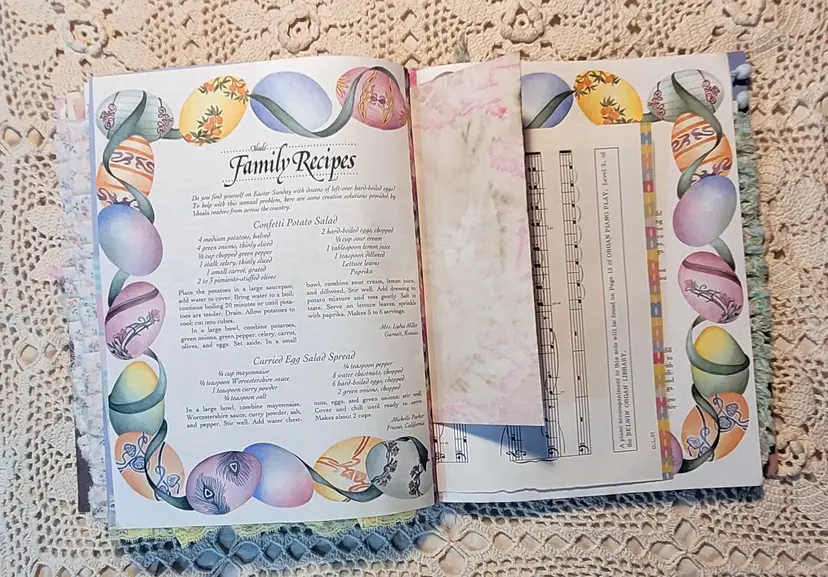 Ideals
Family Recipes
Do you find yourself on Easter Sunday with dozens of left-over hard-boiled eggs?
To help with this annual problem, here are some creative solutions provided by
Ideals readers from across the country.
Confetti Potato Salad
4 medium potatoes, halved
4 green onions, thinly sliced
½ cup chopped green pepper
1 stalk celery, thinly sliced
1 small carrot, grated
2 to 3 pimiento-stuffed olives
2 hard-boiled eggs, chopped
½ cup sour cream
1 tablespoon lemon juice
1 teaspoon dillweed
Lettuce leaves
Paprika
Place the potatoes in a large saucepan;
add water to cover. Bring water to a boil;
continue boiling 20 minutes or until pota-
toes are tender. Drain. Allow potatoes to
cool; cut into cubes.
In a large bowl, combine potatoes,
green onions, green pepper, celery, carrot,
olives, and eggs. Set aside. In a small
bowl, combine sour cream, lemon juice,
and dillweed. Stir well. Add dressing to
potato mixture and toss gently. Salt to
taste. Serve on lettuce leaves; sprinkle
with paprika. Makes 5 to 6 servings.
Mrs. Lydia Miller
Garnett, Kansas
Curried Egg Salad Spread
¼ cup mayonnaise
½ teaspoon Worcestershire sauce
1 teaspoon curry powder
¼ teaspoon salt
¼ teaspoon pepper
8 water chestnuts, chopped
6 hard-boiled eggs, chopped
2 green onions, chopped
In a large bowl, combine mayonnaise,
Worcestershire sauce, curry powder, salt,
and pepper. Stir well. Add water chest-
nuts, eggs, and green onions; stir well.
Cover and chill until ready to serve.
Makes about 2 cups.
Michelle Parker
Fresno, California
A piano accompaniment to this solo will be found on Page 13 of ORGAN PIANO PLAY, Level 3, of
the BELWIN ORGAN LIBRARY.